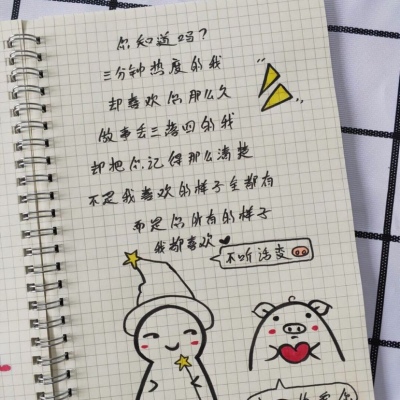 你知道吗？
三分钟热度的我
却喜欢你那么久
做事丢三落四的我
却把你记得那么清楚
不是我喜欢的样子全都有
而是你所有的样子
我都喜欢
不听话变